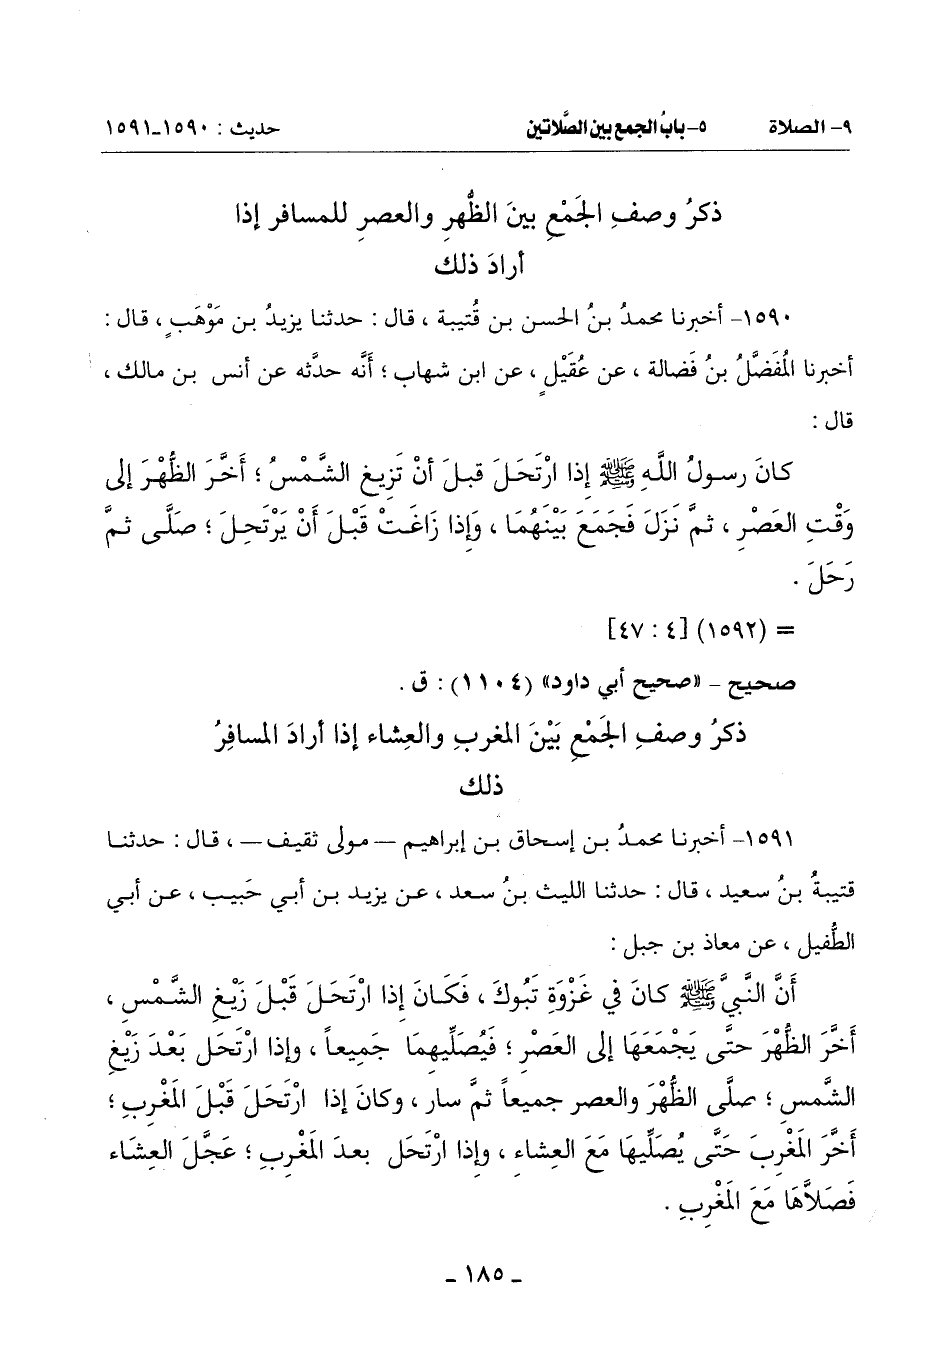 ٩- الصلاة ٥- بابُ الجمع بين الصَّلاتين حديث : ١٥٩٠-١٥٩١
ذكرُ وصفِ الجَمْعِ بينَ الظُّهرِ والعصرِ للمسافر إذا
أرادَ ذلك
١٥٩٠- أخبرنا محمدُ بنُ الحسن بن قُتيبة ، قال : حدثنا يزيدُ بن مَوْهَبٍ ، قال :
أخبرنا المُفَضَّلُ بنُ فَضالة ، عن عُقَيْلٍ ، عن ابن شهاب ؛ أنَّه حدثَّه عن أنس بن مالك ،
قال :
كانَ رسولُ اللَّهِ ﷺ إذا ارْتَحَلَ قبلَ أنْ تَزِيغَ الشَّمْسُ ؛ أَخَّرَ الظُّهْرَ إلى
وَقْتِ العَصْرِ ، ثمَّ نَزَلَ فَجَمَعَ بَيْنَهُمَا ، وَإذا زَاغَتْ قَبْلَ أَنْ يَرْتَحِلَ ؛ صَلَّى ثمَّ
رَحَلَ .
= (١٥٩٢) [٤ : ٤٧]
صحيح - «صحيح أبي داود» (١١٠٤) : ق .
ذكرُ وصفِ الجَمْعِ بَيْنَ المغربِ والعِشاء إذا أرادَ المسافِرُ
ذلك
١٥٩١- أخبرنا محمدُ بن إسحاق بن إبراهيم – مولى ثقيف – ، قال : حدثنا
قتيبةُ بنُ سعيد ، قال : حدثنا الليث بنُ سعد ، عن يزيد بن أبي حَبيب ، عن أبي
الطُّفيل ، عن معاذ بن جبل :
أَنَّ النَّبيَّ ﷺ كانَ في غَزْوَةِ تَبُوكَ ، فَكَانَ إذا ارْتَحَلَ قَبْلَ زَيْغِ الشَّمْسِ ،
أَخَّرَ الظُّهْرَ حتَّى يَجْمَعَهَا إلى العَصْرِ ؛ فَيُصَلِّيهمَا جَميعاً ، وإذا ارْتَحَل بَعْدَ زَيْغِ
الشَّمسِ ؛ صلَّى الظُّهْرَ والعصر جميعاً ثمَّ سار ، وكانَ إذا ارْتَحَلَ قَبْلَ المَغْرِبِ ؛
أَخَّرَ المَغْرِبَ حَتَّى يُصَلِّيهَا مَعَ العِشاءِ ، وإذا ارْتَحَل بعدَ المَغْرِبِ ؛ عَجَّلَ العِشَاء
فَصَلاَّهَا مَعَ المَغْرِبِ .
- ١٨٥ -